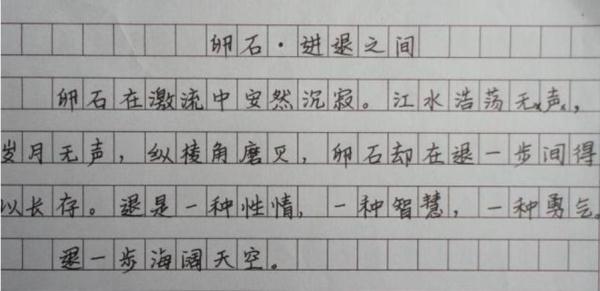 卵石·进退之间
卵石在激流中安然沉寂。江水浩荡无声,
岁月无声,纵棱角磨灭,卵石却在退一步间得
以长存。退是一种性情,一种智慧,一种勇气。
退一步海阔天空。